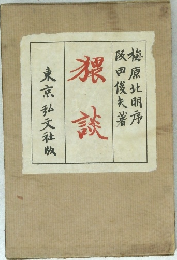 梅原北明序
阪田俊夫著
猥談
東京 弘文社版